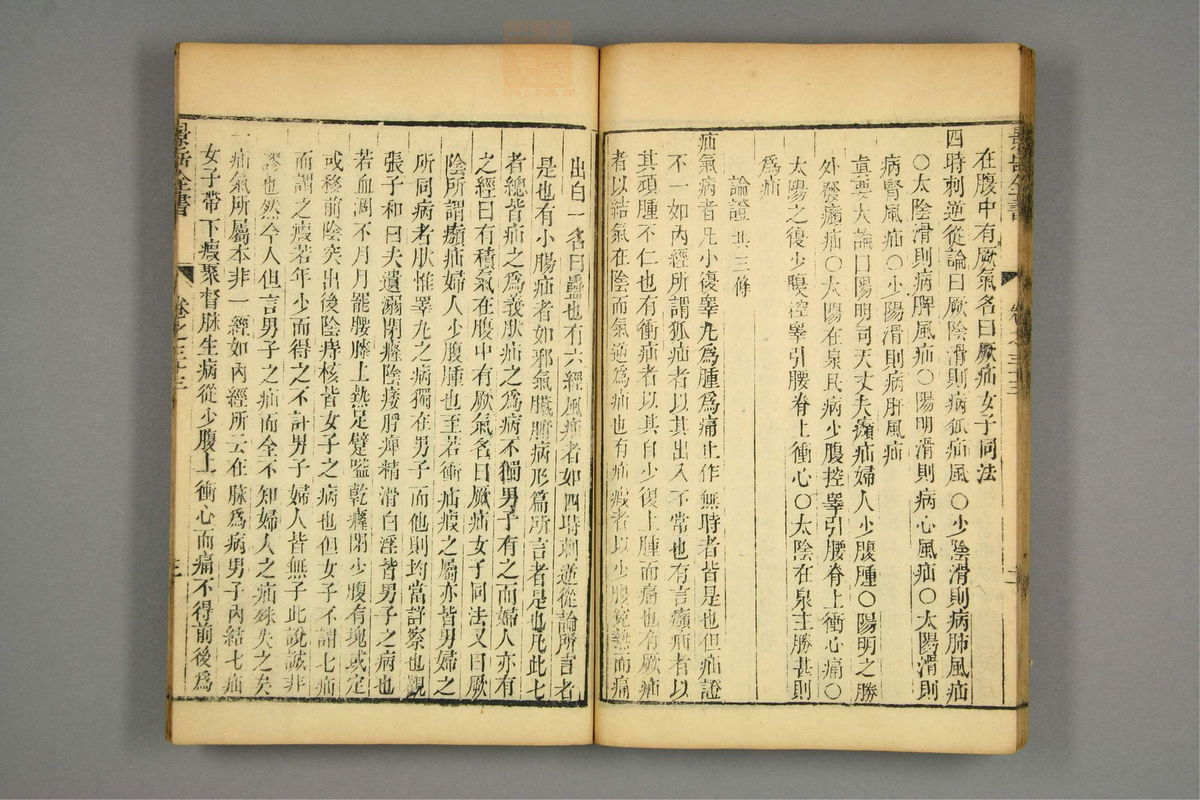 在腹中有厥氣名曰厥疝女子同法
四時刺逆從論曰厥陰滑則病狐疝風〇少陰滑則病肺風疝
〇太陰滑則病脾風疝〇陽明滑則病心風疝〇太陽滑則
病腎風疝〇少陽滑則病肝風疝
眞要大論曰陽明司天丈夫㿗疝婦人少腹腫〇陽明之勝
外發㿗疝〇太陽在泉民病少腹控睪引腰脊上衝心痛〇
太陽之復少腹控睪引腰脊上衝心〇太陰在泉主勝甚則
爲疝
論證 共三條
疝氣病者凡小復睪丸爲腫爲痛止作無時者皆是也但疝證
不一如內經所謂狐疝者以其出入不常也有言㿗疝者以
其頑腫不仁也有衝疝者以其自少復上腫而痛也有厥疝
者以結氣在陰而氣逆爲疝也有疝瘕者以少腹寃熱而痛
景岳全書 卷之三十三
出白一名曰蠱也有六經風疝者如四時刺逆從論所言者
是也有小腸疝者如邪氣臟腑病形篇所言者是也凡此七
者總皆疝之爲義肰疝之爲病不獨男子有之而婦人亦有
之經曰有積氣在腹中有厥氣名曰厥疝女子同法又曰厥
陰所謂㿗疝婦人少腹腫也至若衝疝瘕之屬亦皆男婦之
所同病者肰惟睪丸之病獨在男子而他則均當詳察也觀
張子和曰夫遺溺閉癃陰痿脬痺精滑白淫皆男子之病也
若血涸不月月罷腰膝上熱足躄嗌乾癃閉少腹有塊或定
或移前陰突出後陰痔核皆女子之病也但女子不謂七疝
而謂之瘕若年少而得之不計男子婦人皆無子此說誠非
謬也然今人但言男子之疝而全不知婦人之疝殊失之矣
一疝氣所屬本非一經如內經所云在脉爲病男子內結七疝
女子帶下瘕聚督脉生病從少腹上衝心而痛不得前後爲
景岳全書 卷之三十三 三